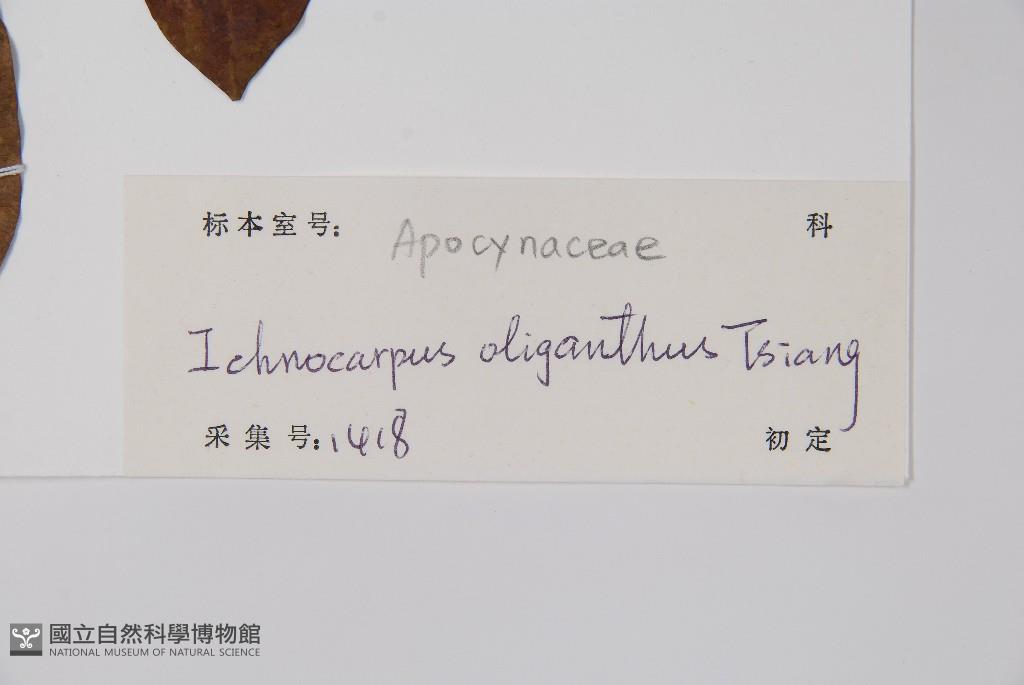 标本室号: Apocynaceae 科
Ichnocarpus oliganthus Tsiang
采集号: 1418 初定
國立自然科學博物館
NATIONAL MUSEUM OF NATURAL SCIENCE